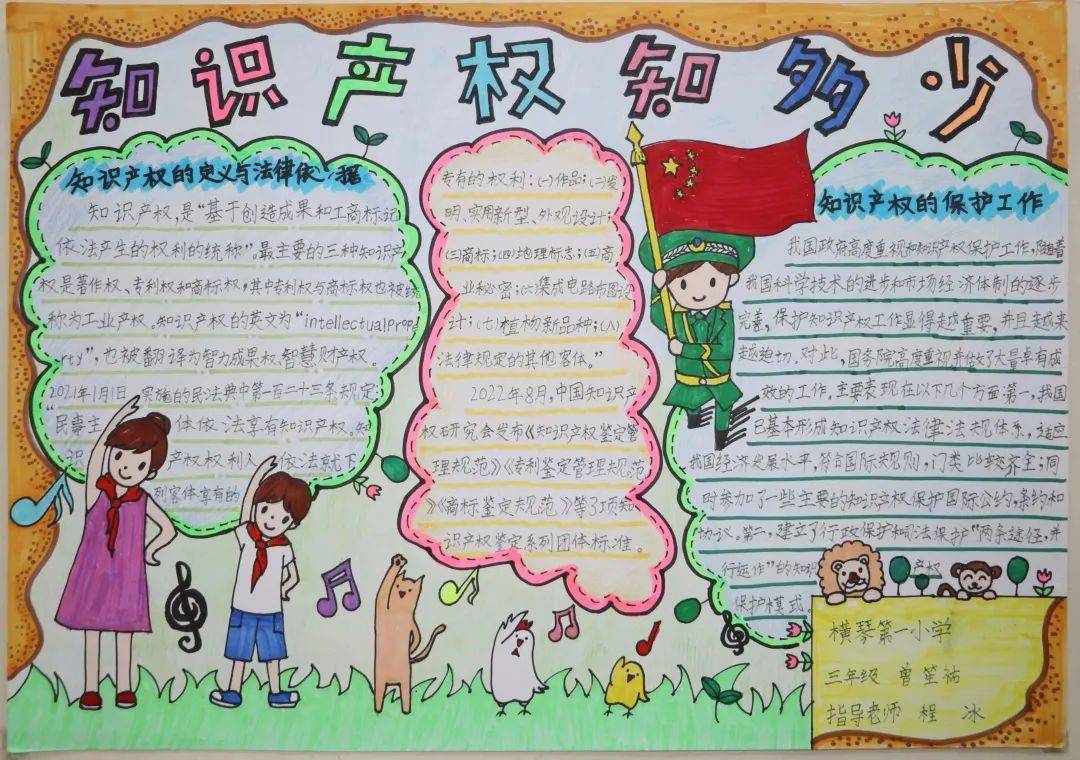 知识产权知多少
知识产权的定义与法律依据
知识产权,是“基于创造成果和工商标记
依法产生的权利的统称”。最主要的三种知识产
权是著作权、专利权和商标权,其中专利权与商标权也被统
称为工业产权。知识产权的英文为“intellectualprop
erty”,也被翻译为智力成果权、智慧财产权。
2021年1月1日,实施的民法典中第一百二十三条规定:
“民事主 体依法享有知识产权。知
识 产权权利人 依法就下
列客体享有的
专有的权利:(一)作品;(二)发
明、实用新型、外观设计;
(三)商标;(四)地理标志;(五)商
业秘密;(六)集成电路布图设
计;(七)植物新品种;(八)
法律规定的其他客体。”
2022年8月,中国知识产
权研究会发布《知识产权鉴定管
理规范》《专利鉴定管理规范
》《商标鉴定规范》等了项知
识产权鉴定系列团体标准。
知识产权的保护工作
我国政府高度重视和知识产权保护工作,随着
我国科学技术的进步和市场经济体制的逐步
完善,保护知识产权工作显得越重要,并且越来
越迫切。对此,国务院高度重视并做了大量卓有成
效的工作。主要表现在以下几个方面:第一,我国
已基本形成知识产权法律法规体系,适应
我国经济发展水平,符合国际规则,门类比较齐全;同
时参加了一些主要的知识产权保护国际公约,条约和
协议。第二,建立了“行政保护和司法保护”两条途径,并
行运作”的知识 产权
保护模式。
横琴第一小学
三年级 曾笙祐
指导老师 程 冰